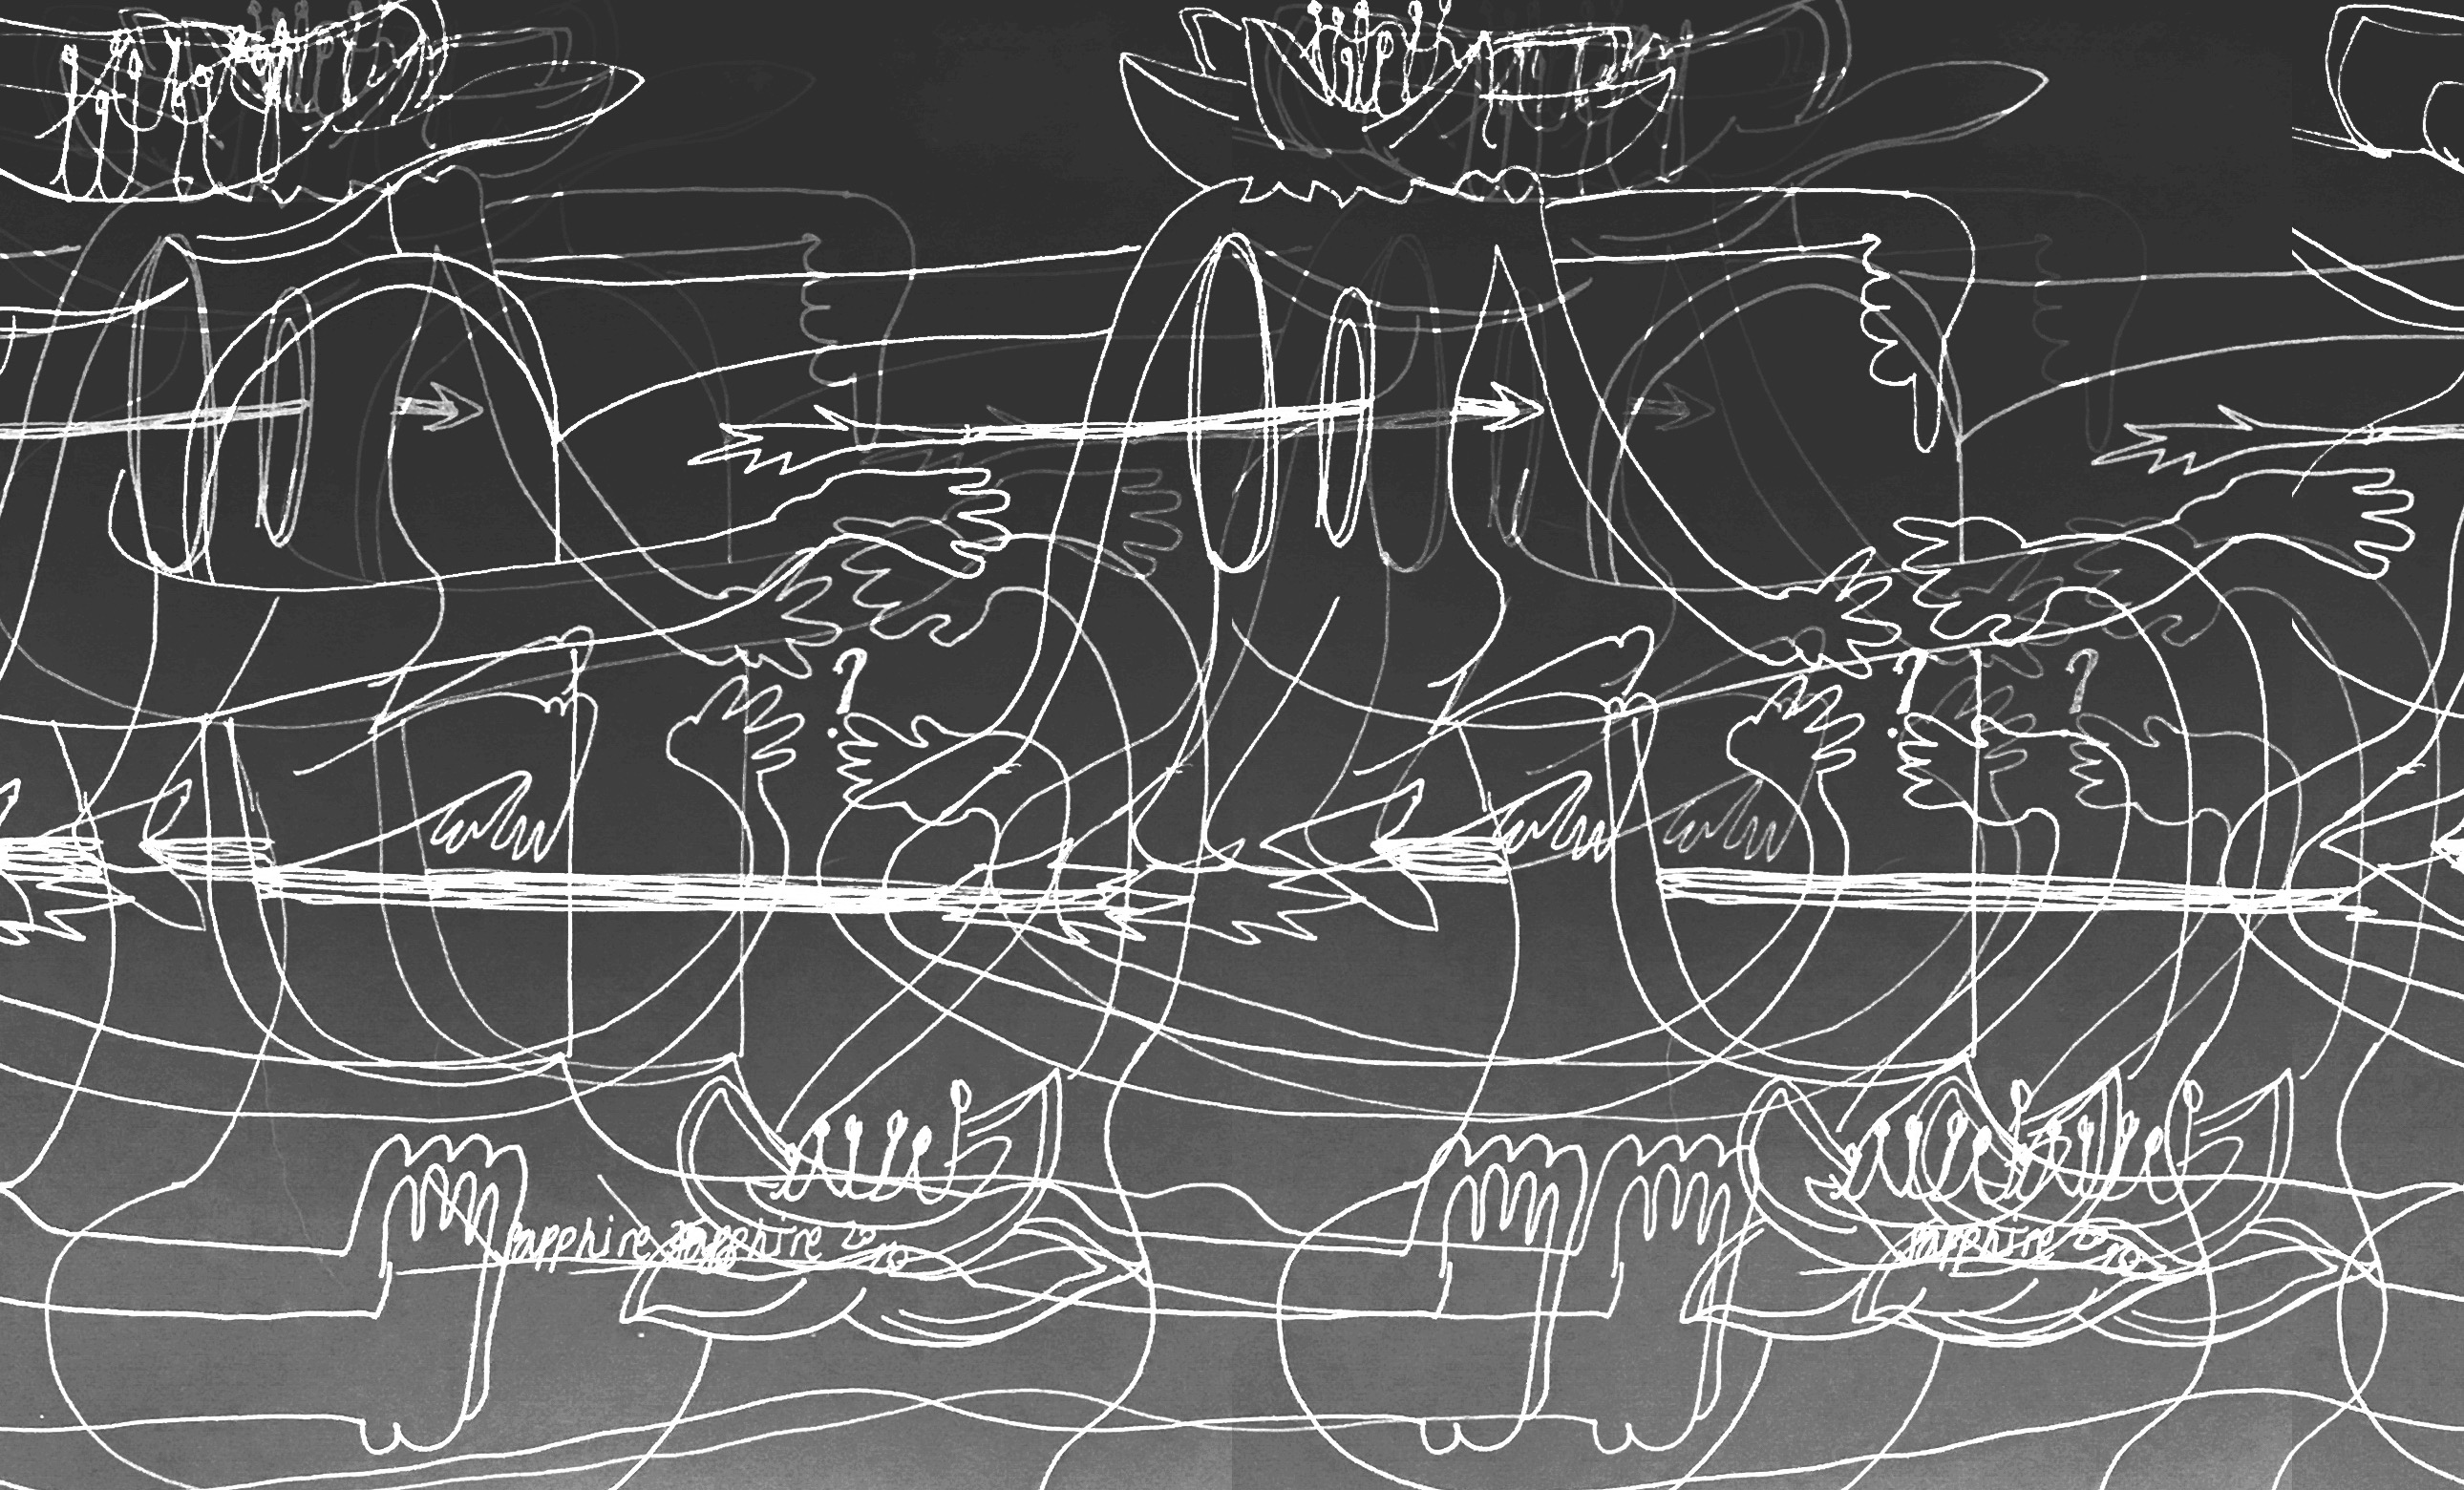 ?
? ?
sapphire sapphire
sapphire